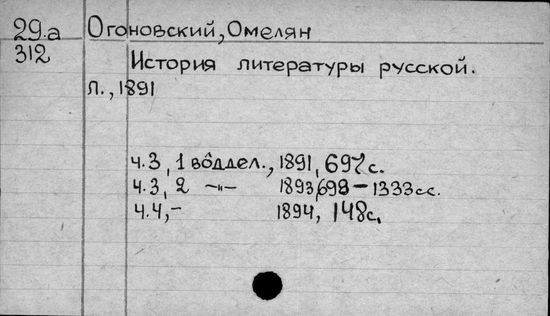 29.а Огоновский, Омелян
312 История литературы русской.
Л., 1891
ч.3, 1 вôддел., 1891, 697 с.
ч.3, 2 -"- 1893, 698 - 1333 сс.
ч.4, - 1894, 148 с.